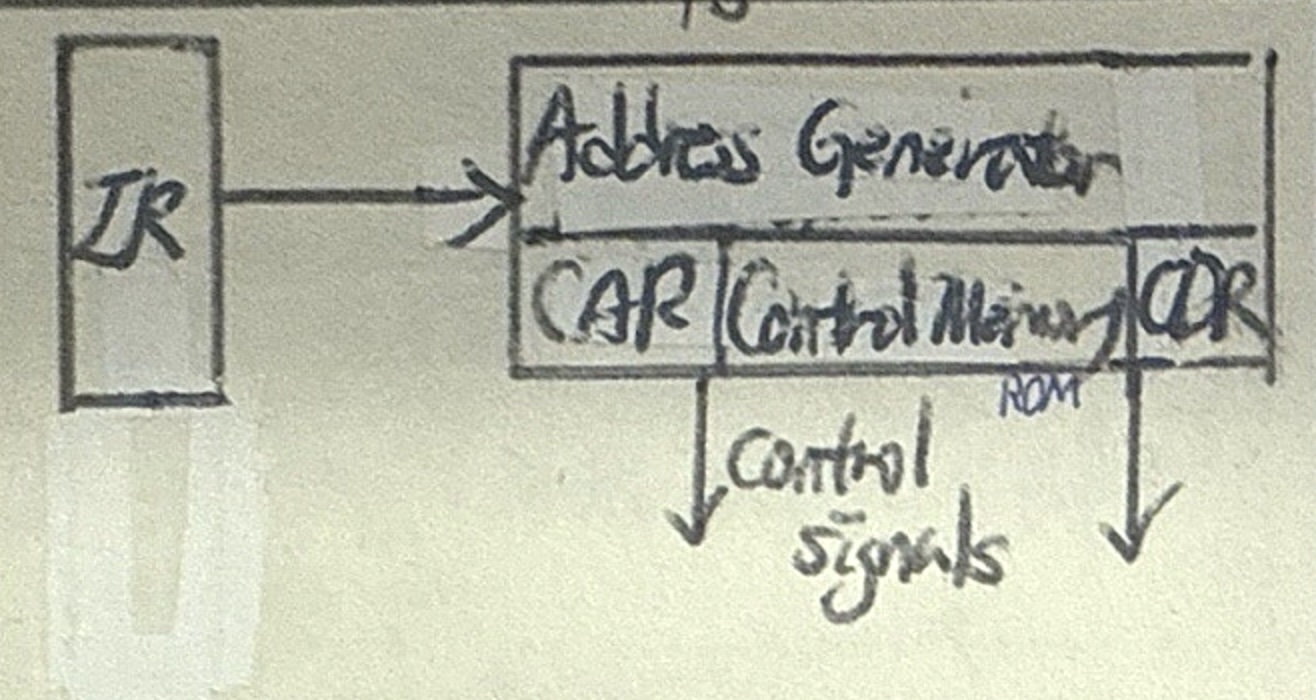 IR
Address Generator
CAR
Control Memory
CDR
ROM
control
signals